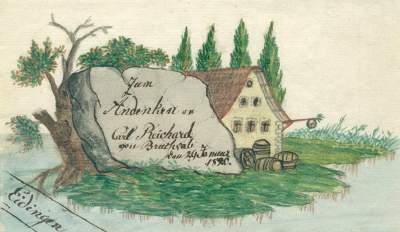 Zum
Andenken an
Carl Reichard
von Bruchsal
den 29
Eidingen